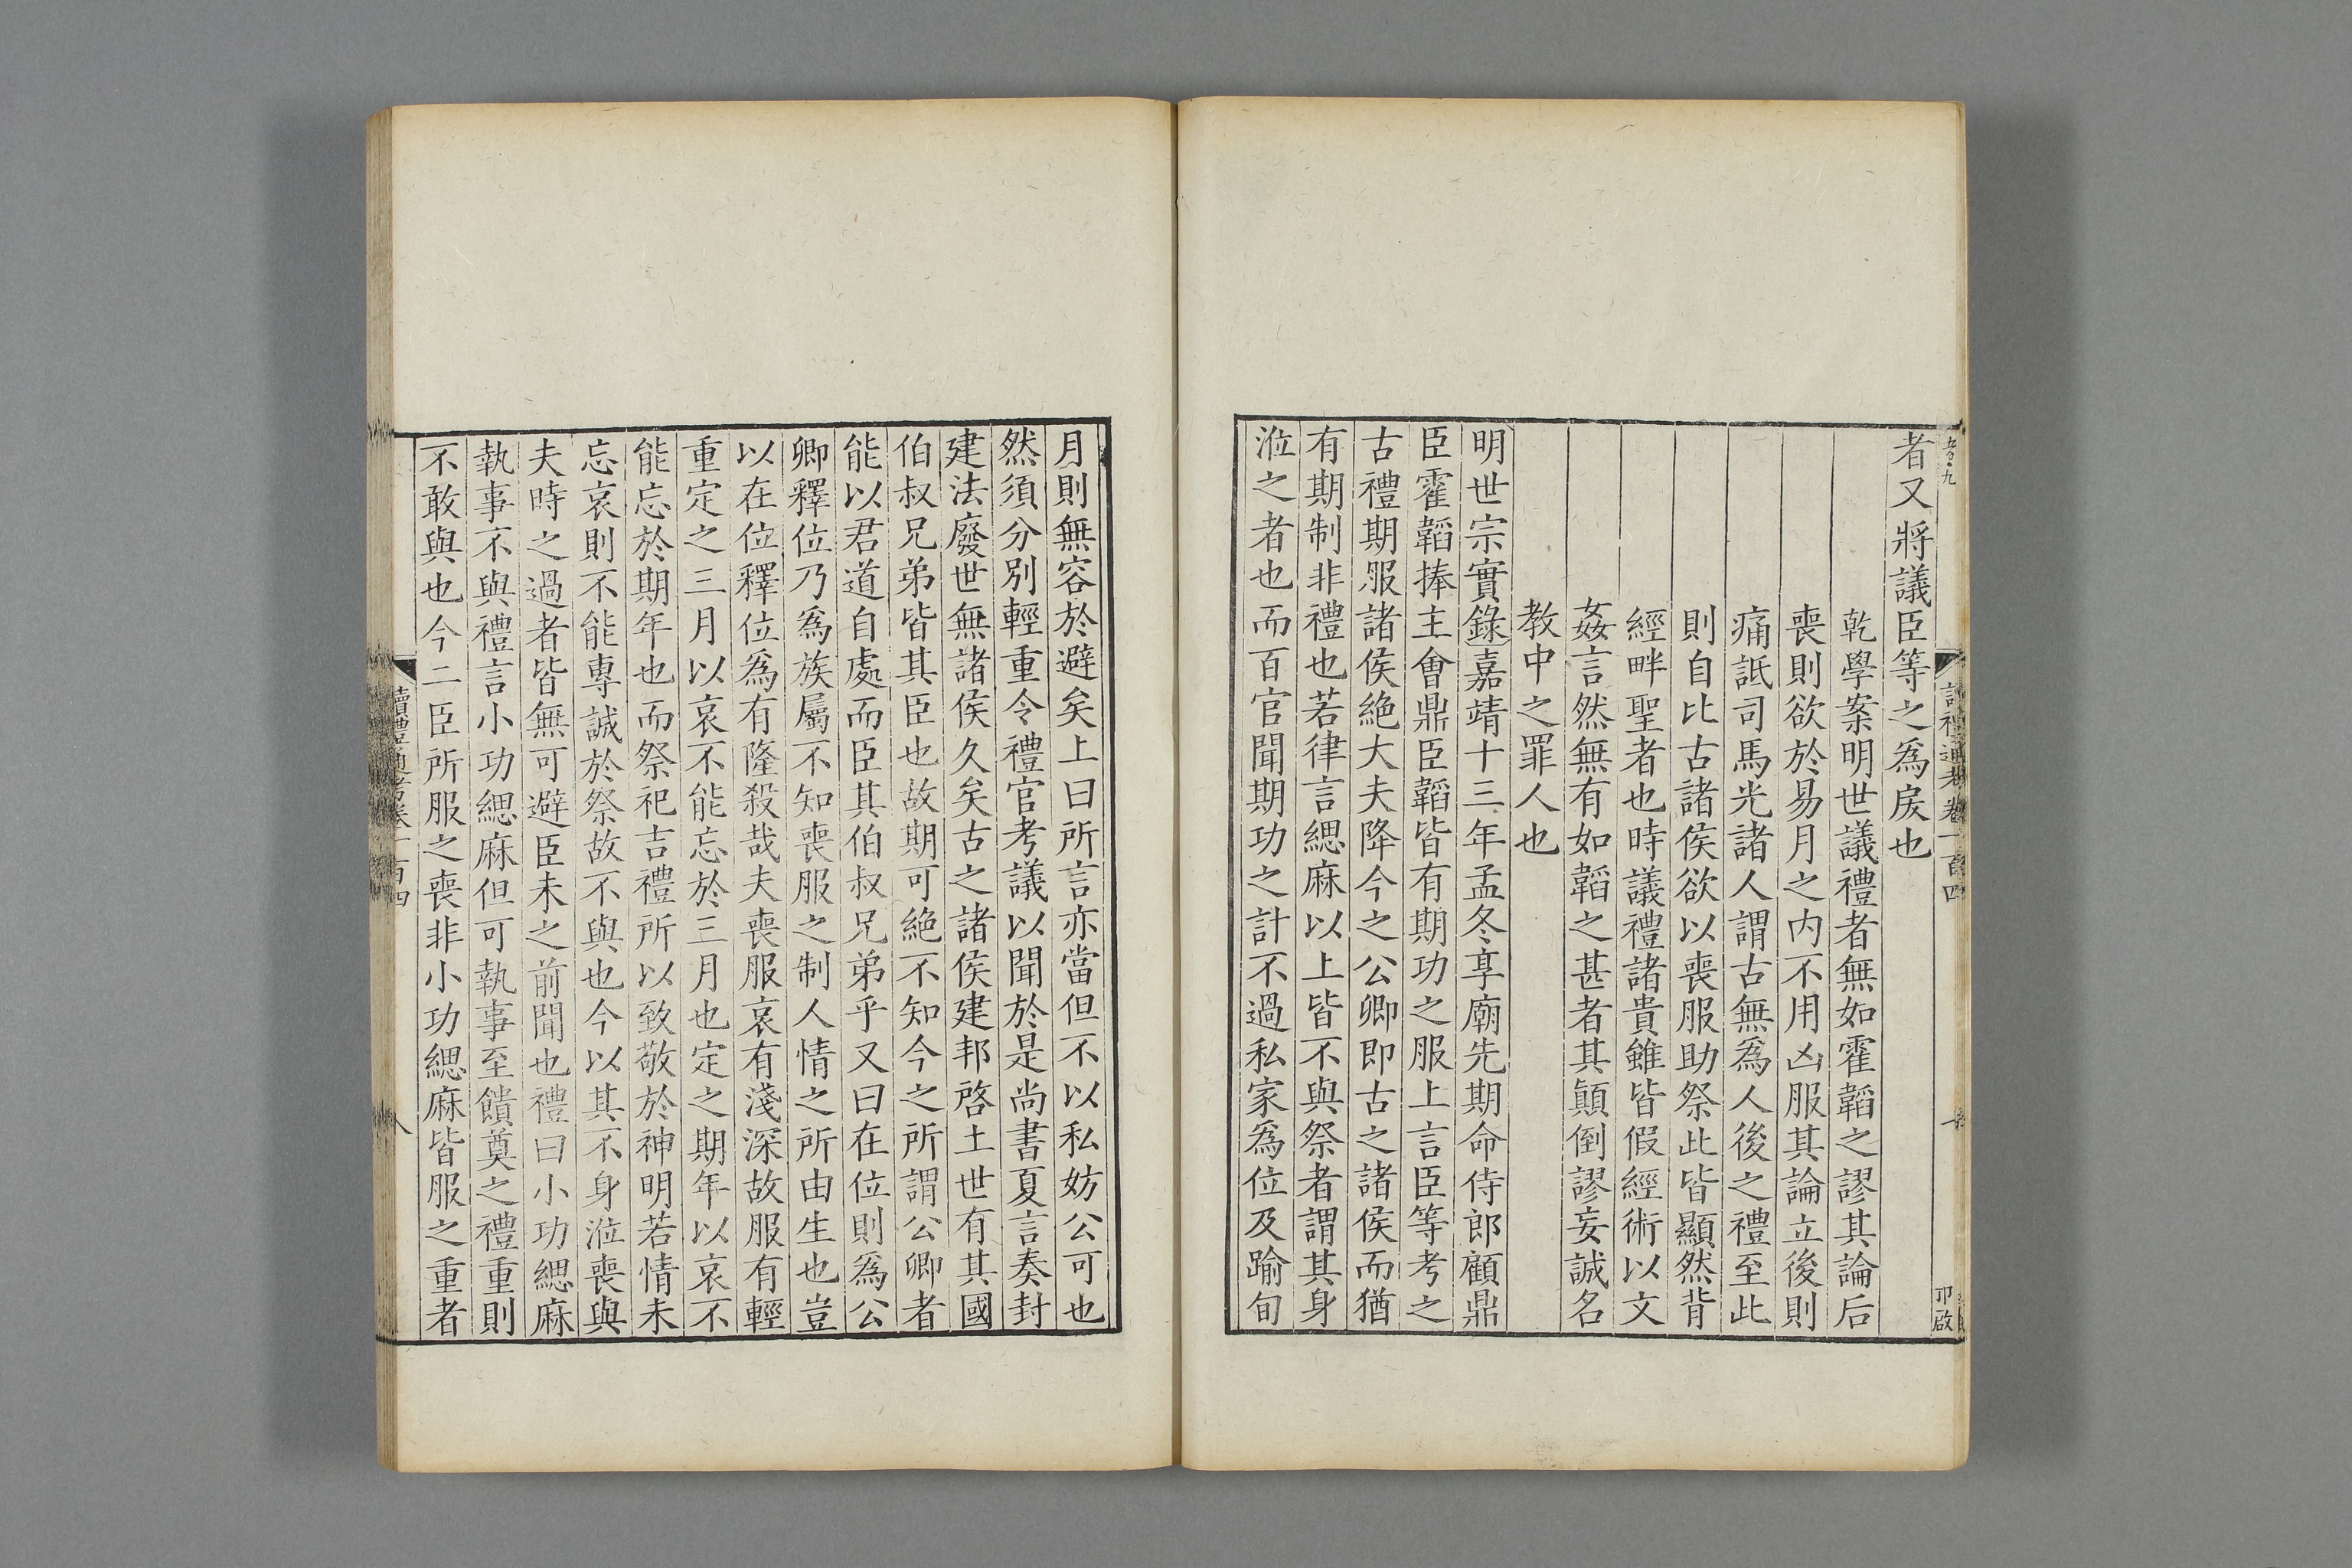 者又將議臣等之爲戾也
乾學案明世議禮者無如霍韜之謬其論后
喪則欲於易月之内不用凶服其論立後則
痛詆司馬光諸人謂古無爲人後之禮至此
則自比古諸侯欲以喪服助祭此皆顯然背
經畔聖者也時議禮諸貴雖皆假經術以文
姦言然無有如韜之甚者其顛倒謬妄誠名
教中之罪人也
明世宗實錄嘉靖十三年孟冬享廟先期命侍郎顧鼎
臣霍韜捧主會鼎臣韜皆有期功之服上言臣等考之
古禮期服諸侯絶大夫降今之公卿即古之諸侯而猶
有期制非禮也若律言緦麻以上皆不與祭者謂其身
涖之者也而百官聞期功之計不過私家爲位及踰旬
月則無容於避矣上曰所言亦當但不以私妨公可也
然須分別輕重令禮官考議以聞於是尚書夏言奏封
建法廢世無諸侯久矣古之諸侯建邦啓土世有其國
伯叔兄弟皆其臣也故期可絶不知今之所謂公卿者
能以君道自處而臣其伯叔兄弟乎又曰在位則爲公
卿釋位乃爲族屬不知喪服之制人情之所由生也豈
以在位釋位爲有隆殺哉夫喪服哀有淺深故服有輕
重定之三月以哀不能忘於三月也定之期年以哀不
能忘於期年也而祭祀吉禮所以致敬於神明若情未
忘哀則不能專誠於祭故不與也今以其不身涖喪與
夫時之過者皆無可避臣未之前聞也禮曰小功緦麻
執事不與禮言小功緦麻但可執事至饋奠之禮重則
不敢與也今二臣所服之喪非小功緦麻皆服之重者
讀禮通考卷一百四
八